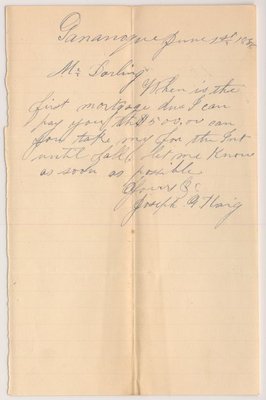 Gananoque June 1st
Mr Darling
When is the
first mortgage due I can
pay you the $500.00 can
you take my for the Int
until fall, let me know
as soon as possible
Yours &c
Joseph A Haig